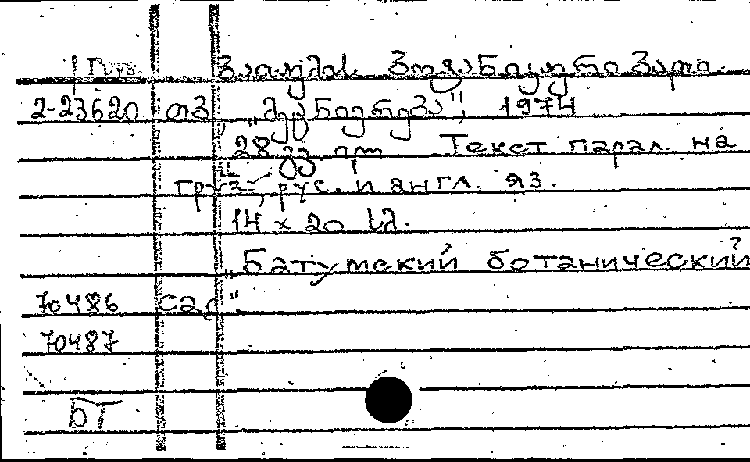 Груз. ბათუმის ბოტანიკური ბაღი.
2-23620 თბ., „მეცნიერება", 1974
28 გვ. Текст парал. на
груз., рус. и англ. яз.
14 x 20 სმ.
„Батумский ботанический
70486 сад"
70487
БТ